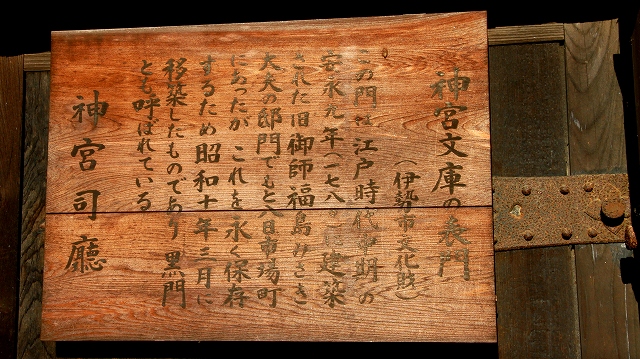 神宮文庫の表門
(伊勢市文化財)
この門は江戸時代中期の
安永九年(一七八〇)建築
された旧御師福島みさき
大夫の邸門でもと八日市場町
にあったが これを永く保存
するため昭和十年三月に
移築したものであり 黒門
とも呼ばれている
神宮司廳